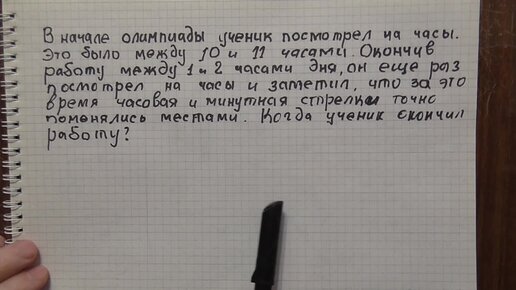 В начале олимпиады ученик посмотрел на часы.
Это было между 10 и 11 часами. Окончив
работу между 1 и 2 часами дня, он еще раз
посмотрел на часы и заметил, что за это
время часовая и минутная стрелки точно
поменялись местами. Когда ученик окончил
работу?